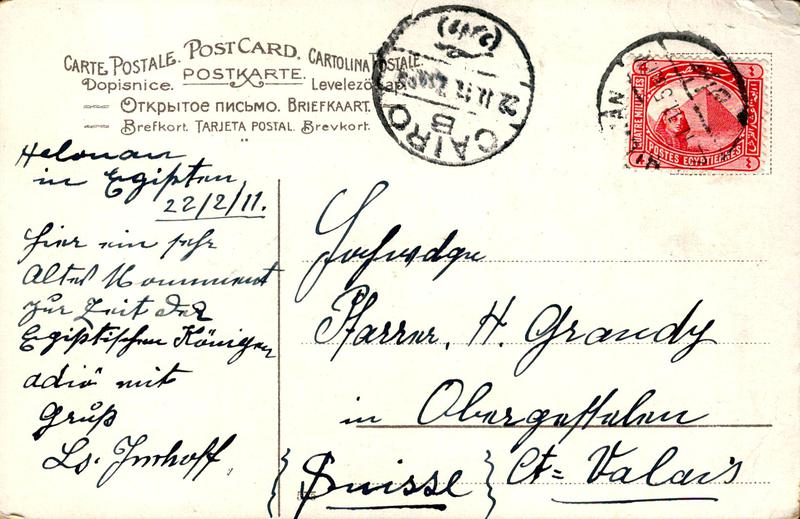 CARTE POSTALE. POST CARD. CARTOLINA POSTALE.
Dopisnice. POSTKARTE. Levelező-Lap.
ОТКРЫТОЕ ПИСЬМО. BRIEFKAART.
Brefkort. TARJETA POSTAL. Brevkort.
CAIRO
B
QUATRE MILLIEMES
POSTES EGYPTIENNES
Helouan
in Egipten
22/2/11.
hier ein sehr
Altes Monument
zur Zeit der
Egiptischen Königen
adiö mit
Gruß
Ls. Imhoff
Hochwdge
Pfarrer, H. Grandy
in Obergestelen
(Suisse) Ct= Valais